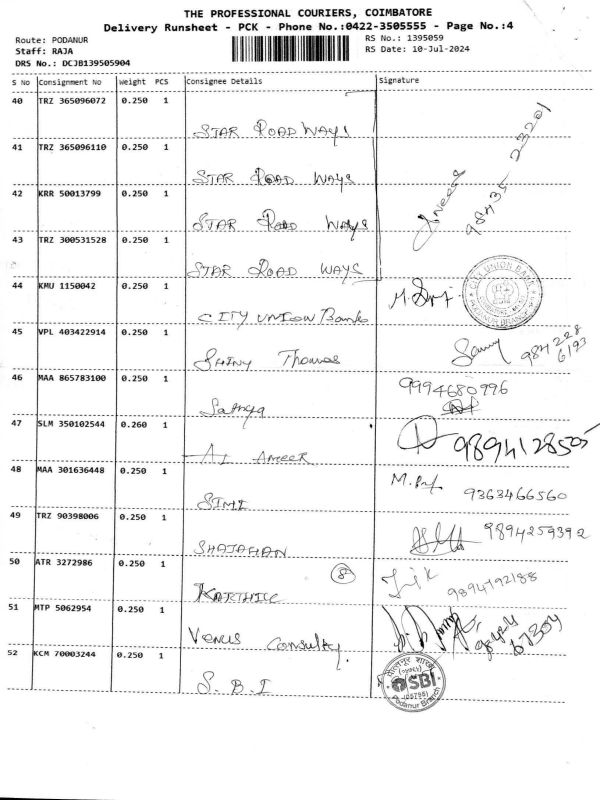 THE PROFESSIONAL COURIERS, COIMBATORE
Delivery Runsheet - PCK - Phone No.:0422-3505555 - Page No.:4
Route: PODANUR
RS No.: 1395059
Staff: RAJA
RS Date: 10-Jul-2024
DRS No.: DCJB139505904
S No Consignment No Weight PCS Consignee Details Signature
40 TRZ 365096072 0.250 1
STAR ROAD WAYS
41 TRZ 365096110 0.250 1
STAR ROAD WAYS
98435 23201
42 KRR 50013799 0.250 1
STAR ROAD WAYS
43 TRZ 300531528 0.250 1
STAR ROAD WAYS
44 KMU 1150042 0.250 1
CITY UNION Bank
CITY UNION BANK
45 VPL 403422914 0.250 1
SHINY Thomas
984228 6193
46 MAA 865783100 0.250 1
Sathya
9994680996
47 SLM 350102544 0.260 1
AL AMEER
9894128505
48 MAA 301636448 0.250 1
SIMI
9363466560
49 TRZ 90398006 0.250 1
SHAJAHAN
9894259392
50 ATR 3272986 0.250 1
8
KARTHIC
9894192188
51 MTP 5062954 0.250 1
Venus Consulty.
52 KCM 70003244 0.250 1
S.B.I
SBI
Podanur Branch